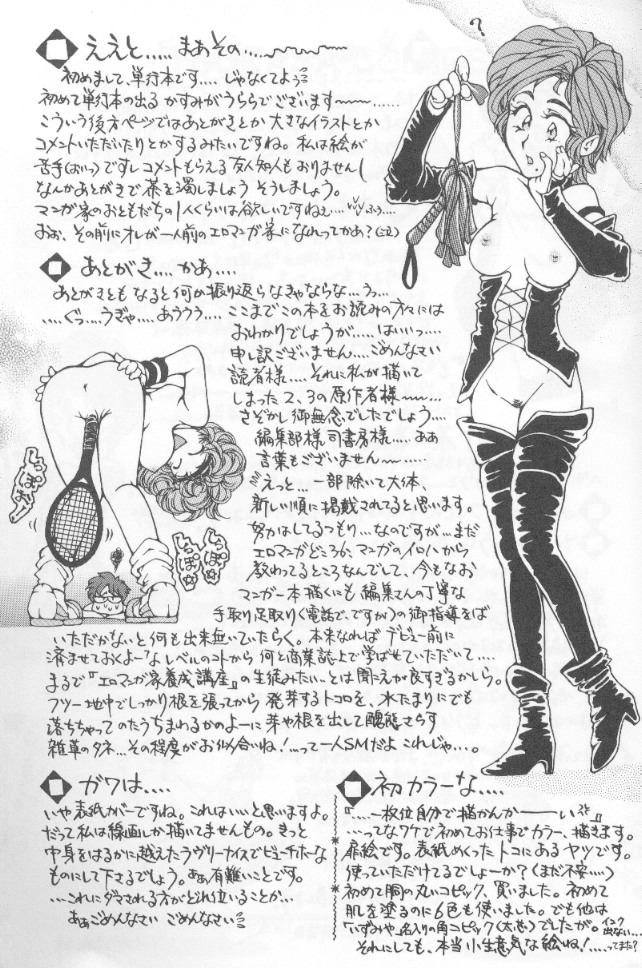 ええと.....まぁその....
初めまして、単行本です....じゃなくてよぅ
初めて単行本の出る かすみがうらら でございます〜〜〜......
こういう後方ページではあとがきとか大きなイラストとか
コメントいただいたりとかするみたいですね。私は絵が
苦手(おいっ)ですしコメントもらえる友人知人もおりませんし
なんかあとがきで茶を濁しましょう そうしましょう。
マンガ家のおともだちの1人くらいは欲しいですねぇ....ふぅ....
おぉ、その前にオレが一人前のエロマンガ家になれってかぁ?(泣)
あとがき....かぁ....
あとがきともなると何か振り返らなきゃならな...うっ...
....ぐっ....うぎゃ....あううう....ここまでこの本をお読みの方々には
おわかりでしょうが.....はいいっ....
申し訳ございません....ごめんなさい
読者様.....それに私が描いて
しまった2、3の原作者様〜〜....
さぞかし御無念でしたでしょう....
編集部様、司書房様.....ああ
言葉もございません〜〜......
えっと...一部除いて大体、
新しい順に掲載されてると思います。
努力はしてるつもり...なのですが...まだ
エロマンガどころか、マンガのイロハから
教わってるところなんでして、今もなお
マンガ一本描くにも編集さんの丁寧な
手取り足取り(電話で、ですが)の御指導をば
いただかないと何も出来無いていたらく。本来なればデビュー前に
済ませておくよーなレベルのコトから何と商業誌上で学ばせていただいて....
まるで『エロマンガ家養成講座』の生徒みたい...とは聞こえが良すぎるかしら。
フツー地中でしっかり根を張ってから発芽するトコロを、水たまりにでも
落ちちゃってのたうちまわるかのよーに芽や根を出して醜態さらす
雑草のタネ...その程度がお似合いね!...って一人SMだよこれじゃ...。
ガワは....
いや表紙カバーですね。これはいいと思いますよ。
だって私は線画しか描いてませんもの。きっと
中身をはるかに越えたラヴリーナイスでビューチホーな
ものにして下さるでしょう。あぁ有難いことです。
....これにダマされる方がどれ位いることか...
あぁごめんなさい ごめんなさい
初カラーな....
『....一枚位自分で描かんかーーい』
....ってなワケで初めてお仕事でカラー、描きます。
扉絵です。表紙めくったトコにあるヤツです。
使っていただけてるでしょーか?(まだ不安....)
初めて胴の丸いコピック、買いました。初めて
肌を塗るのに6色も使いました。でも他は
「いずみや」名入りの角コピック(太芯)でしたが。インク出ない...
それにしても、本当小生意気な絵ね!....ってまた?
?
しっぽっぽ
しっぽ
しっぽ